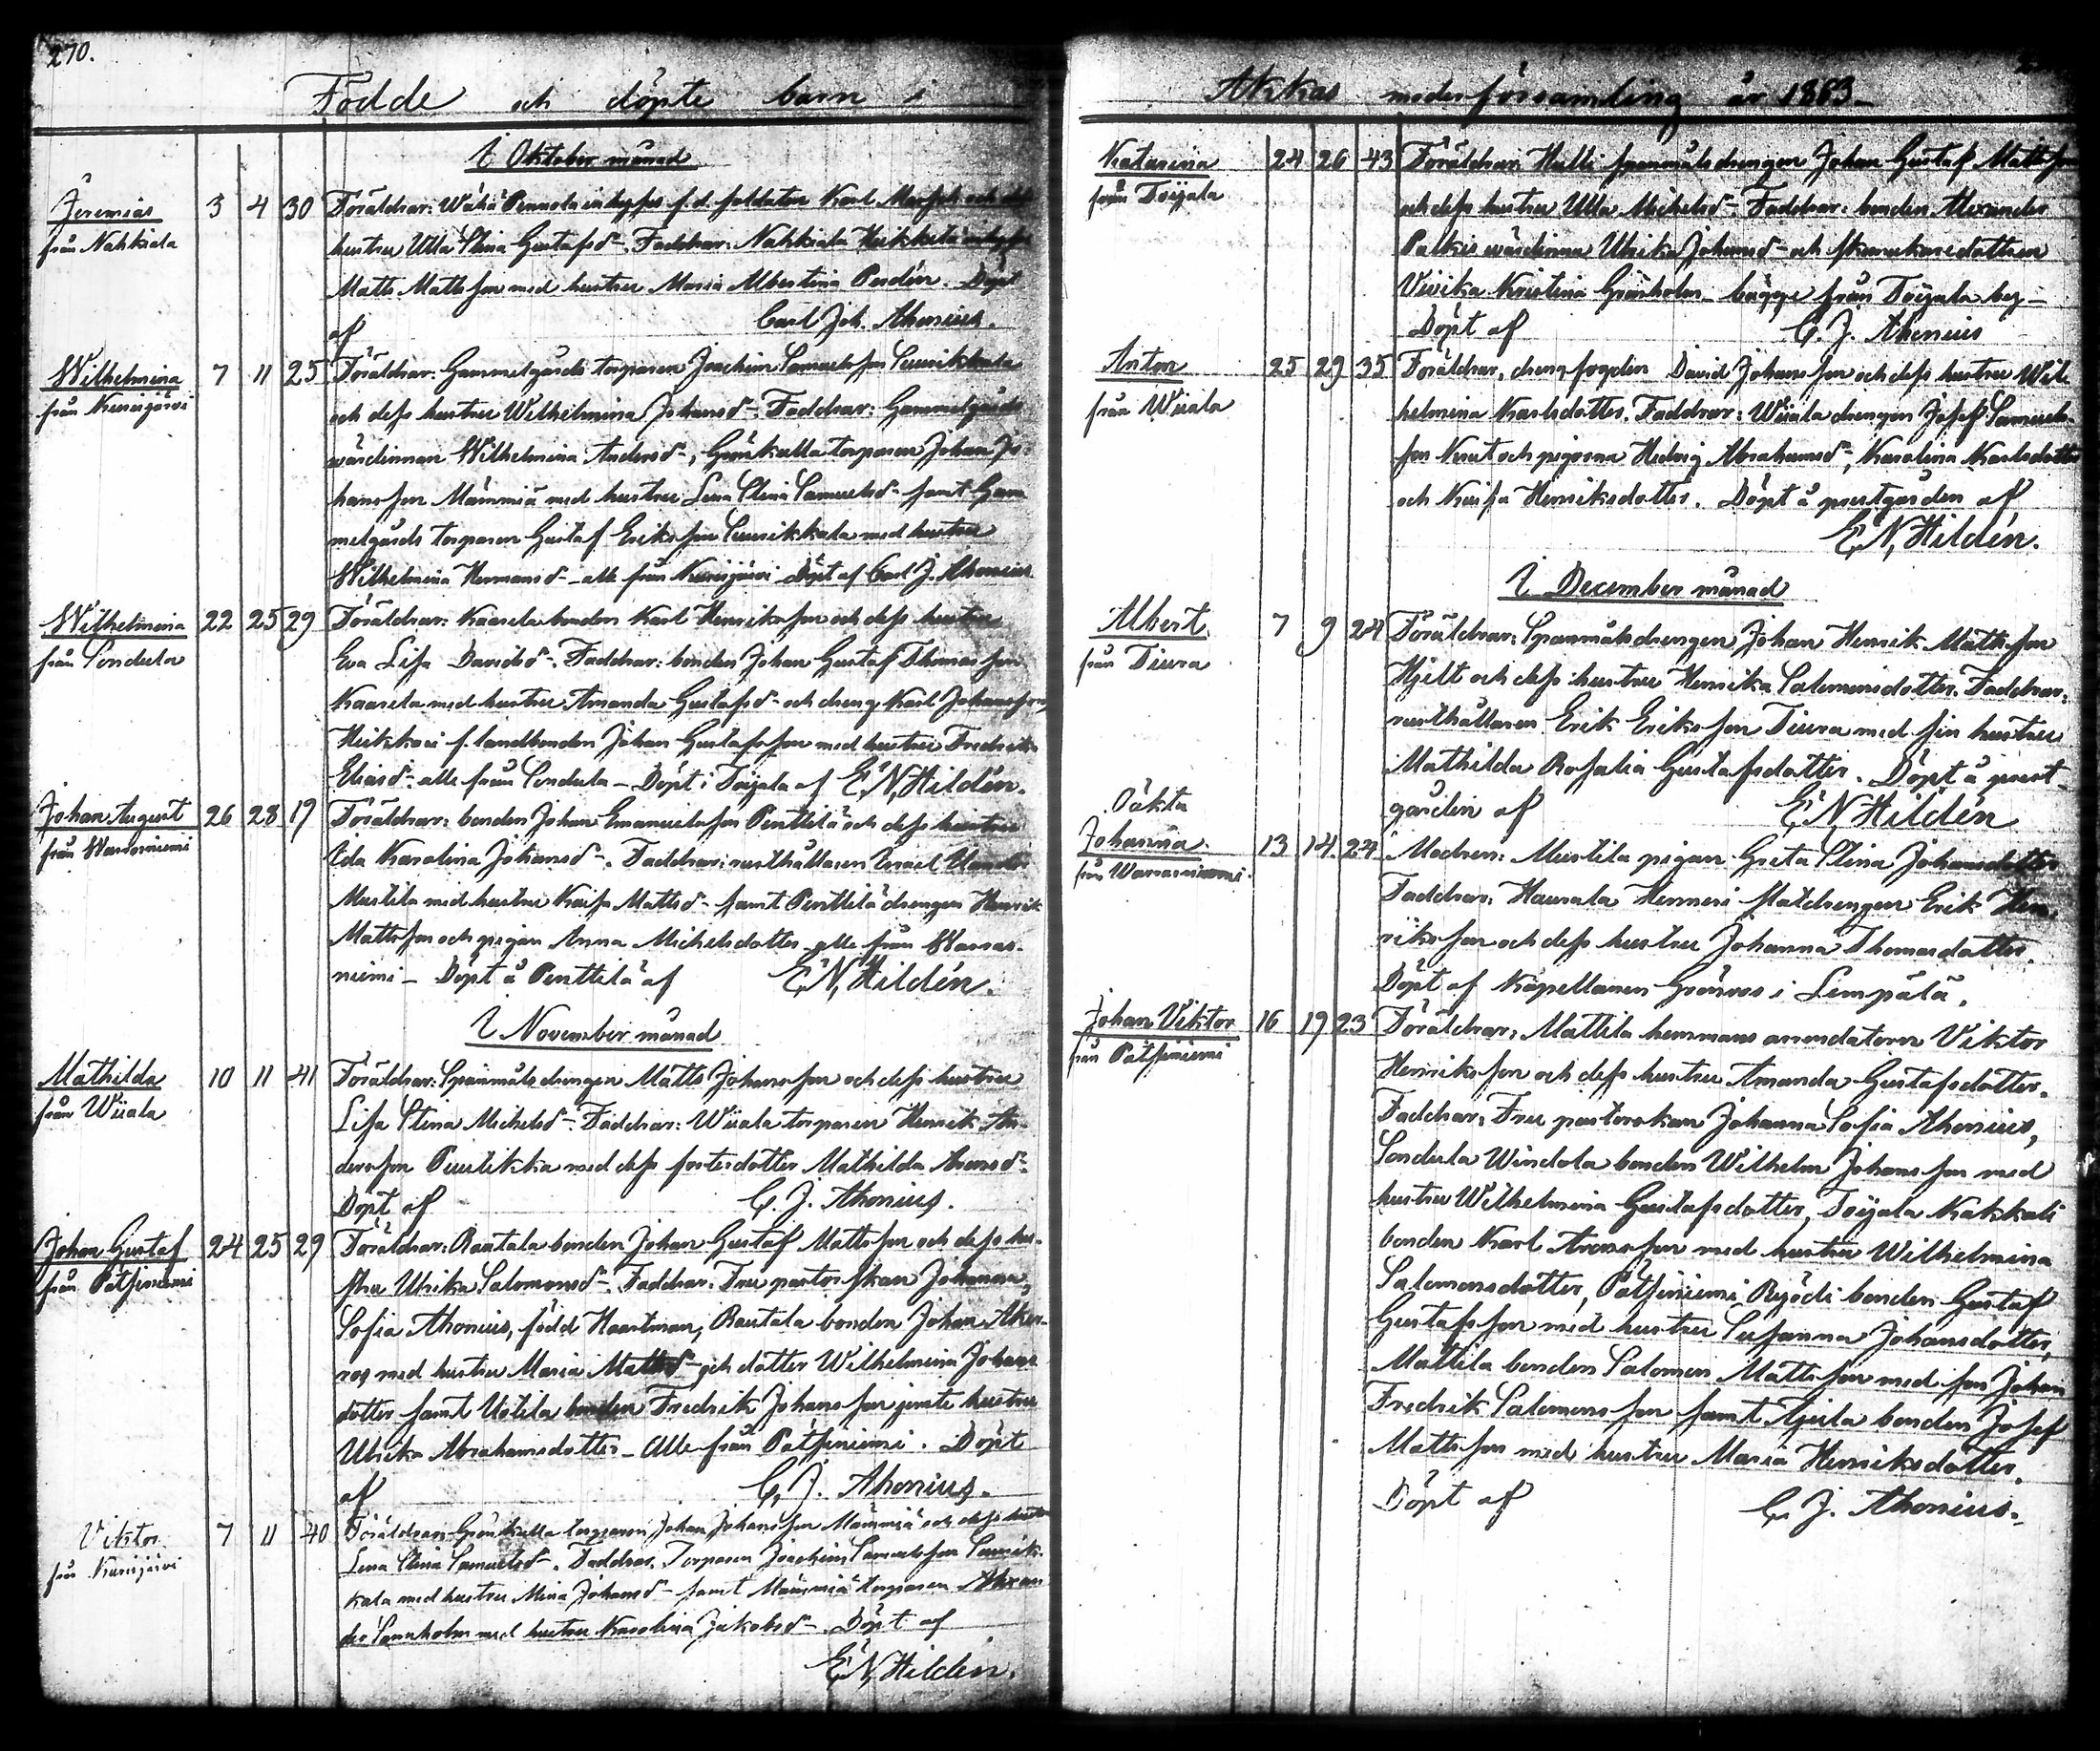 270.
Födde och döpte barn i
I Oktober månad
Jeremias 3 4 30 Föräldrar: Wähä Pennola inhyses f. d. soldaten Karl
från Nahkiala hustru Ulla Stina Gustafsdr. Faddrar: Nahkiala Heikkilä
Matts Mattsson med hustru Maria Albertina Perdén. Döpt
af Carl Joh. Ahonius.
Wilhelmina 7 11 25 Föräldrar: Gammelgårds torparen Joachim Samuelsson
från Kurisjärvi och dess hustru Wilhelmina Johansdr. Faddrar: Gammelgårds
wärdinnan Wilhelmina Andersdr, Grönkulla torparen Johan Jo-
hansson Mämmiä med hustru Lena Stina Samuelsdr samt Gam
melgårds torparen Gustaf Eriksson med hustru
Wilhelmina Hermansdr alle från Kurisjärvi Döpt af Carl J. Ahonius
Wilhelmina 22 25 29 Föräldrar: Kaarela bonden Karl Henriksson och dess hustru
från Sondula Eva Lisa Davidsdr. Faddrar: bonden Johan Gustaf Thomasson
Kaarela med hustru Amanda Gustafsdr och dreng Karl Johansson,
f. landbonden Johan Gustafsson med hustru Fredrika
Eliasdr alle från Sondula – Döpt i Toijala af E. N. Hildén.
Johan August 26 28 19 Föräldrar: bonden Johan Emanuelsson Penttilä och dess hustru
från Warrasniemi Ida Karolina Johansdr. Faddrar: rusthållaren Israel
Mustila med hustru Kaisa Mattsdr samt Penttilä drengen Henrik
Mattsson och pigan Anna Michelsdotter alle från Warras-
niemi – Döpt å Penttilä af E. N. Hildén.
I November månad
Mathilda 10 11 41 Föräldrar: Spanmåls drengen Matts Johansson och dess hustru
från Wiiala Lisa Stina Michelsdr. Faddrar: Wiiala torparen Henrik An-
dersson med dess fosterdotter Mathilda
Döpt af C. J. Ahonius.
Johan Gustaf 24 25 29 Föräldrar: Rautala bonden Johan Gustaf Mattsson och dess hu-
från Pätsiniemi stru Ulrika Salomonsdr. Faddrar: Fru pastorskan Johanna
Sofia Ahonius, född Haartman, Rautala bonden Johan Aker-
ros med hustru Maria Mattsdr och dotter Wilhelmina Johans
dotter samt Uotila bonden Fredrik Johansson jemte hustru
Ulrika Abrahamsdotter – Alle från Pätsiniemi. Döpt
af C. J. Ahonius.
Viktor 7 11 40 Föräldrar: Grönkulla torparen Johan Johansson Mämmiä och dess hustru
från Kurisjärvi Lena Stina Samuelsdr. Faddrar. Torparen Joachim Samuelsson
med hustru Mina Johansdr samt Mämmiä torparen Alexan
der med hustru Karolina Jakobsdr. Döpt af
E. N. Hildén.
Akkas moderförsamling år 1863
Katarina 24 26 43 Föräldrar: spanmålsdrengen Johan Gustaf Mattsson
från Toijala och dess hustru Ulla Michelsdr. Faddrar: bonden Alexander
wärdinna Ulrika Johansdr och
Viivika Kristina Grönholm begge från Toijala by –
Döpt af C. J. Ahonius
Anton 25 29 35 Föräldrar, drengfogden David Johansson och dess hustru Wil
från Wiiala helmina Karlsdotter. Faddrar: Wiiala drengen Josef Samuels
son och pigorna Hedvig Abrahamsdr, Karolina Karlsdotter
och Kaisa Henriksdotter. Döpt å prestgården af
E. N. Hildén.
I December månad
Albert 7 9 24 Föräldrar: Spanmålsdrengen Johan Henrik Mattsson
från Tiura Hjelt och dess hustru Henrika Salomonsdotter. Faddrar:
rusthållaren Erik Eriksson Tiura med sin hustru
Mathilda Rosalia Gustafsdotter. Döpt å prest-
gården af E. N. Hildén
Oäkta
Johanna 13 14 24 Modren: Mustila pigan Greta Stina Johansdotter
från Warrasniemi. Faddrar: statdrengen Erik Hen-
riksson och dess hustru Johanna Thomasdotter.
Döpt af Kapellanen i Lempälä.
Johan Viktor 16 19 23 Föräldrar: Mattila hemmans arrendatorn Viktor
från Pätsiniemi Henriksson och dess hustru Amanda Gustafsdotter.
Faddrar: Fru pastorskan Johanna Sofia Ahonius,
Sondula Windola bonden Wilhelm Johansson med
hustru Wilhelmina Gustafsdotter, Toijala
bonden Karl med hustru Wilhelmina
Salomonsdotter, Pätsiniemi bonden Gustaf
Gustafsson med hustru Susanna Johansdotter,
Mattila bonden Salomon Mattsson med son Johan
Fredrik Salomonsson samt bonden Josef
Mattsson med hustru Maria Henriksdotter.
Döpt af C. J. Ahonius.